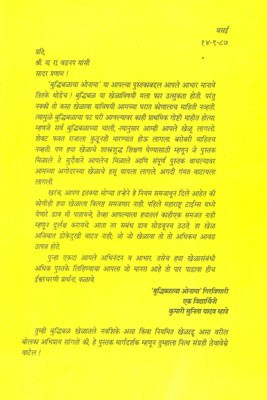 वसई
१४-९-८७
प्रति,
श्री. ना. रा. वडनप यांसी
सादर प्रणाम !
'बुद्धिबळाचा ओनामा' या आपल्या पुस्तकाबद्दल आपले आभार मानावे
तितके थोडेच ! बुद्धिबळ या खेळाविषयी मला फार उत्सुकता होती. परंतु
नक्की तो कसा खेळावा याविषयी आमच्या घरात कोणालाच माहिती नव्हती.
त्यामुळे बुद्धिबळाचा पट परी आणल्यावर काही प्राथमिक गोष्टी माहीत होत्या.
म्हणजे सर्व बुद्धिबळाच्या चाली, त्यानुसार आम्ही आपले खेळू लागलो.
शेवट फक्त राजाला कुठूनही मारण्यात होऊ लागला. बरोबरी माहितच
नव्हती. पण ह्या खेळाचे शास्त्रशुद्ध शिक्षण घेण्यासाठी म्हणून जे पुस्तक
मिळाले ते सुदैवाने आपलेच मिळाले आणि संपूर्ण पुस्तक वाचल्यावर
आमच्या अगोदरच्या खेळाचे हसू यायला लागले अगदी गंमत वाटायला
लागली.
खरंच, आपण इतक्या सोप्या तऱ्हेने हे नियम समजावून दिले आहेत की
कोणीही ह्या खेळाला क्लिष्ट समजणार नाही. पहिले महाराष्ट्र टाईम्स मध्ये
येणारे डाव मी पाहायचे, तेव्हा आपल्याला ह्यातले काहीएक समजत नाही
म्हणून दुर्लक्ष करायचे. आता ता सबंध डाव सोडवूनच उठते. हा खेळ
अजिबात डोकेदुखी वाटत नाही; जो जो खेळावा तो तो अधिकच आवड
उत्पन्न होते.
पुन्हा एकदा आपले अभिनंदन व आभार, तसेच ह्या खेळासंबंधी
अधिक पुस्तके लिहिण्याचा आपला जो मानस आहे तो पार पाडावा हीच
ईश्वरचरणी प्रार्थना, कळावे.
'बुद्धिबळाच्या ओनामा' गिरविणारी
एक विद्यार्थिनी
कुमारी सुनिता यादव म्हात्रे
तुम्ही बुद्धिबळ खेळातले नवशिके असा किंवा नियमित खेळाडू असा वरील
बोलका अभिप्राय सांगतो की, हे पुस्तक मार्गदर्शक म्हणून तुम्हाला नित्य संग्रही ठेवावेचे
वाटेल !